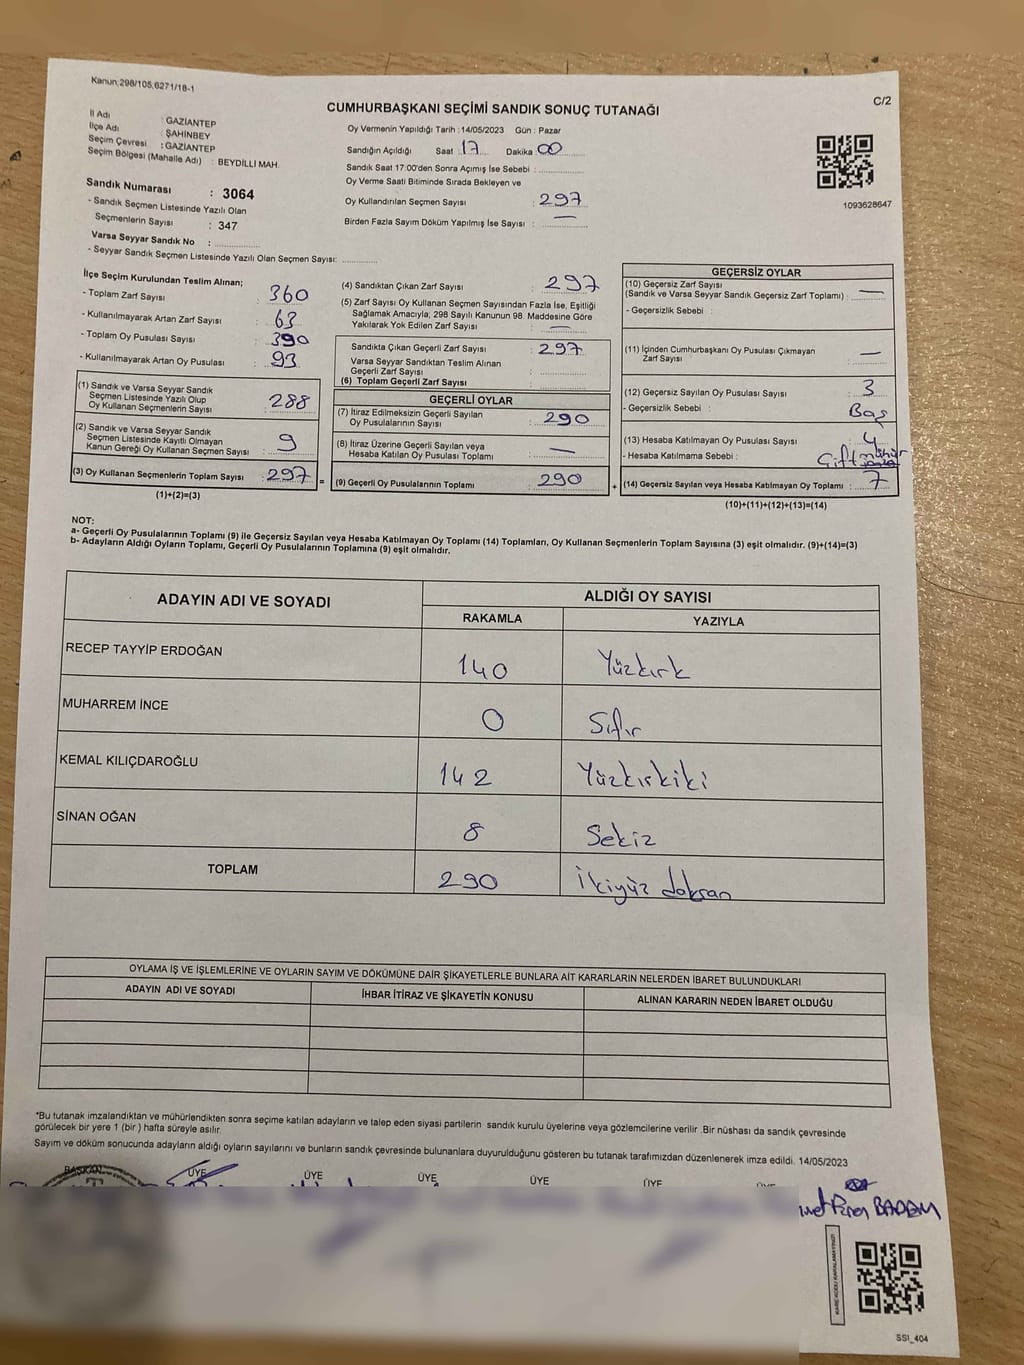 Kanun:298/105,6271/18-1
C/2
CUMHURBAŞKANI SEÇİMİ SANDIK SONUÇ TUTANAĞI
İl Adı : GAZİANTEP
İlçe Adı : ŞAHİNBEY
Seçim Çevresi : GAZİANTEP
Seçim Bölgesi (Mahalle Adı) : BEYDİLLİ MAH.
Sandık Numarası : 3064
- Sandık Seçmen Listesinde Yazılı Olan
Seçmenlerin Sayısı : 347
Varsa Seyyar Sandık No :
- Seyyar Sandık Seçmen Listesinde Yazılı Olan Seçmen Sayısı:
Oy Vermenin Yapıldığı Tarih : 14/05/2023 Gün : Pazar
Sandığın Açıldığı Saat : 17 Dakika : 00
Sandık Saat 17:00'den Sonra Açımış İse Sebebi :
Oy Verme Saati Bitiminde Sırada Bekleyen ve
Oy Kullandırılan Seçmen Sayısı : 297
Birden Fazla Sayım Döküm Yapılmış İse Sayısı : —
1093628647
İlçe Seçim Kurulundan Teslim Alınan;
- Toplam Zarf Sayısı : 360
- Kullanılmayarak Artan Zarf Sayısı : 63
- Toplam Oy Pusulası Sayısı : 390
- Kullanılmayarak Artan Oy Pusulası : 93
(1) Sandık ve Varsa Seyyar Sandık
Seçmen Listesinde Yazılı Olup
Oy Kullanan Seçmenlerin Sayısı : 288
(2) Sandık ve Varsa Seyyar Sandık
Seçmen Listesinde Kayıtlı Olmayan
Kanun Gereği Oy Kullanan Seçmen Sayısı : 9
(3) Oy Kullanan Seçmenlerin Toplam Sayısı : 297
(1)+(2)=(3)
(4) Sandıktan Çıkan Zarf Sayısı : 297
(5) Zarf Sayısı Oy Kullanan Seçmen Sayısından Fazla İse, Eşitliği
Sağlamak Amacıyla; 298 Sayılı Kanunun 98. Maddesine Göre
Yakılarak Yok Edilen Zarf Sayısı : —
Sandıkta Çıkan Geçerli Zarf Sayısı : 297
Varsa Seyyar Sandıktan Teslim Alınan
Geçerli Zarf Sayısı :
(6) Toplam Geçerli Zarf Sayısı :
GEÇERLİ OYLAR
(7) İtiraz Edilmeksizin Geçerli Sayılan
Oy Pusulalarının Sayısı : 290
(8) İtiraz Üzerine Geçerli Sayılan veya
Hesaba Katılan Oy Pusulası Toplamı : —
= (9) Geçerli Oy Pusulalarının Toplamı : 290
GEÇERSİZ OYLAR
(10) Geçersiz Zarf Sayısı
(Sandık ve Varsa Seyyar Sandık Geçersiz Zarf Toplamı) : —
- Geçersizlik Sebebi :
(11) İçinden Cumhurbaşkanı Oy Pusulası Çıkmayan
Zarf Sayısı : —
(12) Geçersiz Sayılan Oy Pusulası Sayısı : 3
- Geçersizlik Sebebi : Boş
(13) Hesaba Katılmayan Oy Pusulası Sayısı : 4
- Hesaba Katılmama Sebebi : Çift mühür
+ (14) Geçersiz Sayılan veya Hesaba Katılmayan Oy Toplamı : 7
(10)+(11)+(12)+(13)=(14)
NOT:
a- Geçerli Oy Pusulalarının Toplamı (9) ile Geçersiz Sayılan veya Hesaba Katılmayan Oy Toplamı (14) Toplamları, Oy Kullanan Seçmenlerin Toplam Sayısına (3) eşit olmalıdır. (9)+(14)=(3)
b- Adayların Aldığı Oyların Toplamı, Geçerli Oy Pusulalarının Toplamına (9) eşit olmalıdır.
ADAYIN ADI VE SOYADI ALDIĞI OY SAYISI
RAKAMLA YAZIYLA
RECEP TAYYİP ERDOĞAN 140 Yüzkırk
MUHARREM İNCE 0 Sıfır
KEMAL KILIÇDAROĞLU 142 Yüzkırkiki
SİNAN OĞAN 8 Sekiz
TOPLAM 290 İkiyüz doksan
OYLAMA İŞ VE İŞLEMLERİNE VE OYLARIN SAYIM VE DÖKÜMÜNE DAİR ŞİKAYETLERLE BUNLARA AİT KARARLARIN NELERDEN İBARET BULUNDUKLARI
ADAYIN ADI VE SOYADI İHBAR İTİRAZ VE ŞİKAYETİN KONUSU ALINAN KARARIN NEDEN İBARET OLDUĞU
*Bu tutanak imzalandıktan ve mühürlendikten sonra seçime katılan adayların ve talep eden siyasi partilerin sandık kurulu üyelerine veya gözlemcilerine verilir .Bir nüshası da sandık çevresinde
görülecek bir yere 1 (bir ) hafta süreyle asılır.
Sayım ve döküm sonucunda adayların aldığı oyların sayılarını ve bunların sandık çevresinde bulunanlara duyurulduğunu gösteren bu tutanak tarafımızdan düzenlenerek imza edildi. 14/05/2023
BAŞKAN ÜYE ÜYE ÜYE ÜYE ÜYE
BADEM
KARE KODU KARALAMAYINIZ!
SSI_404